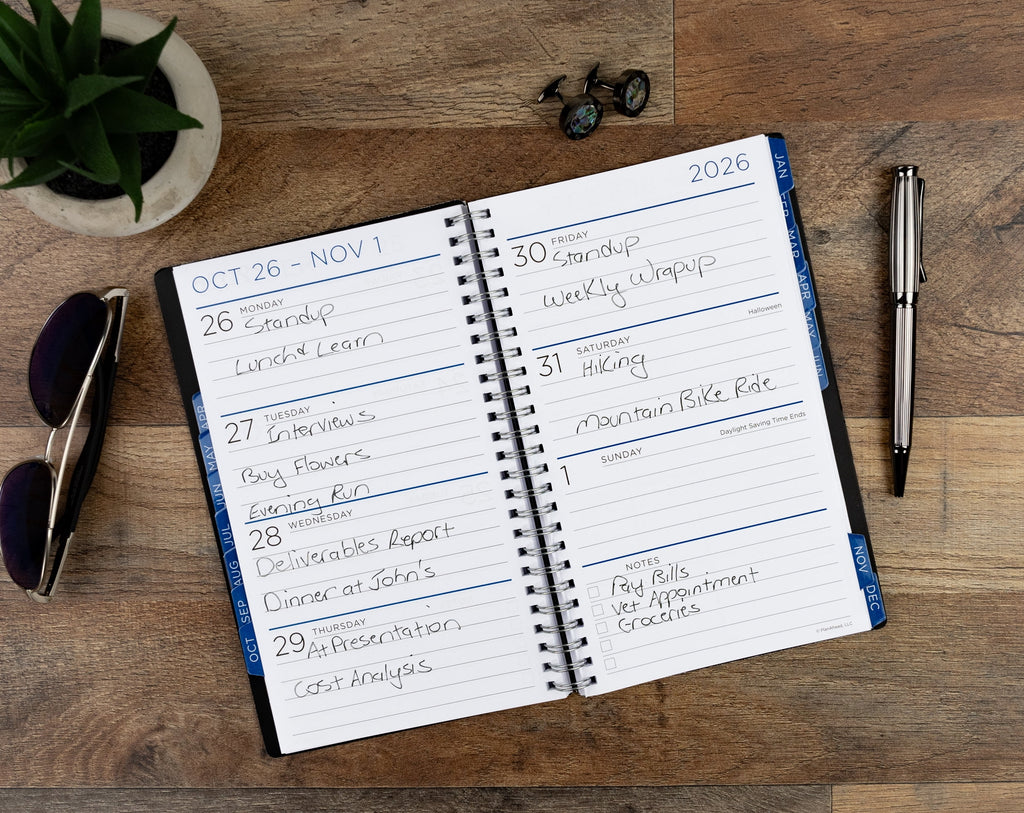 OCT 26 - NOV 1
26 MONDAY
Standup
Lunch & Learn
27 TUESDAY
Interviews
Buy Flowers
Evening Run
28 WEDNESDAY
Deliverables Report
Dinner at John's
29 THURSDAY
A+ Presentation
Cost Analysis
APR
MAY
JUN
JUL
AUG
SEP
OCT
2026
30 FRIDAY
Standup
Weekly Wrapup
Halloween
31 SATURDAY
Hiking
Mountain Bike Ride
Daylight Saving Time Ends
1 SUNDAY
NOTES
Pay Bills
Vet Appointment
Groceries
© PlanAhead, LLC
JAN
FEB
MAR
APR
MAY
JUN
NOV
DEC